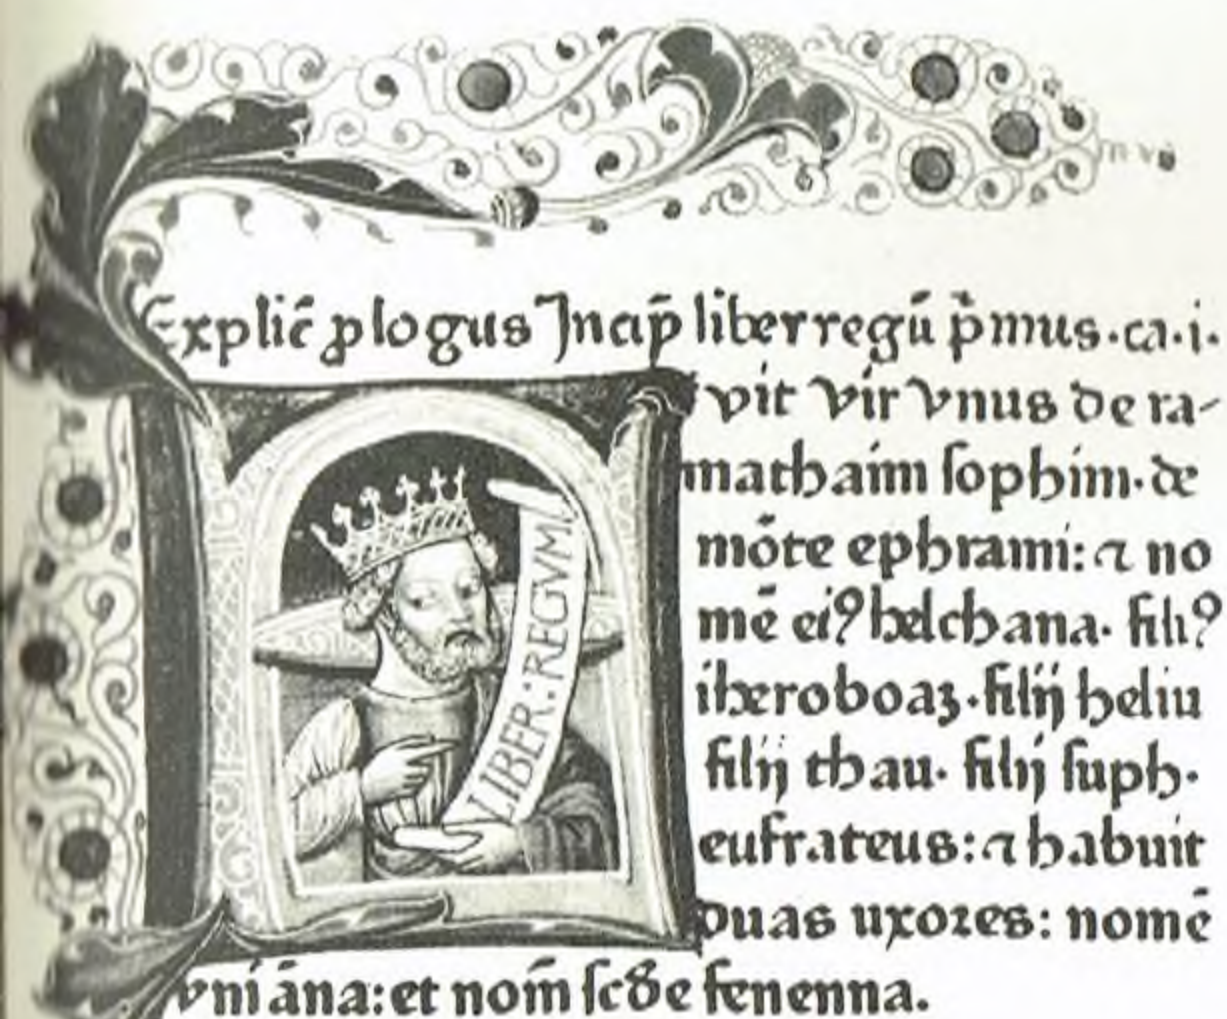 Explic̄ ꝓlogus Jncip̄ liber regū pͥmus·ca·i·
LIBER:REGVM
Fvit vir vnus de ra-
mathaim sophim· de
mōte ephrami: ⁊ no
mē eiꝰ helchana· filiꝰ
iheroboaz·filij heliu
filij thau· filij suph·
eufrateus: ⁊ habuit
duas uxores: nomē
vni āna: et nom̄ scd̄e fenenna.